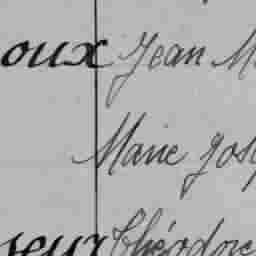 oux Jean M
Marie Jos
seur Théodore